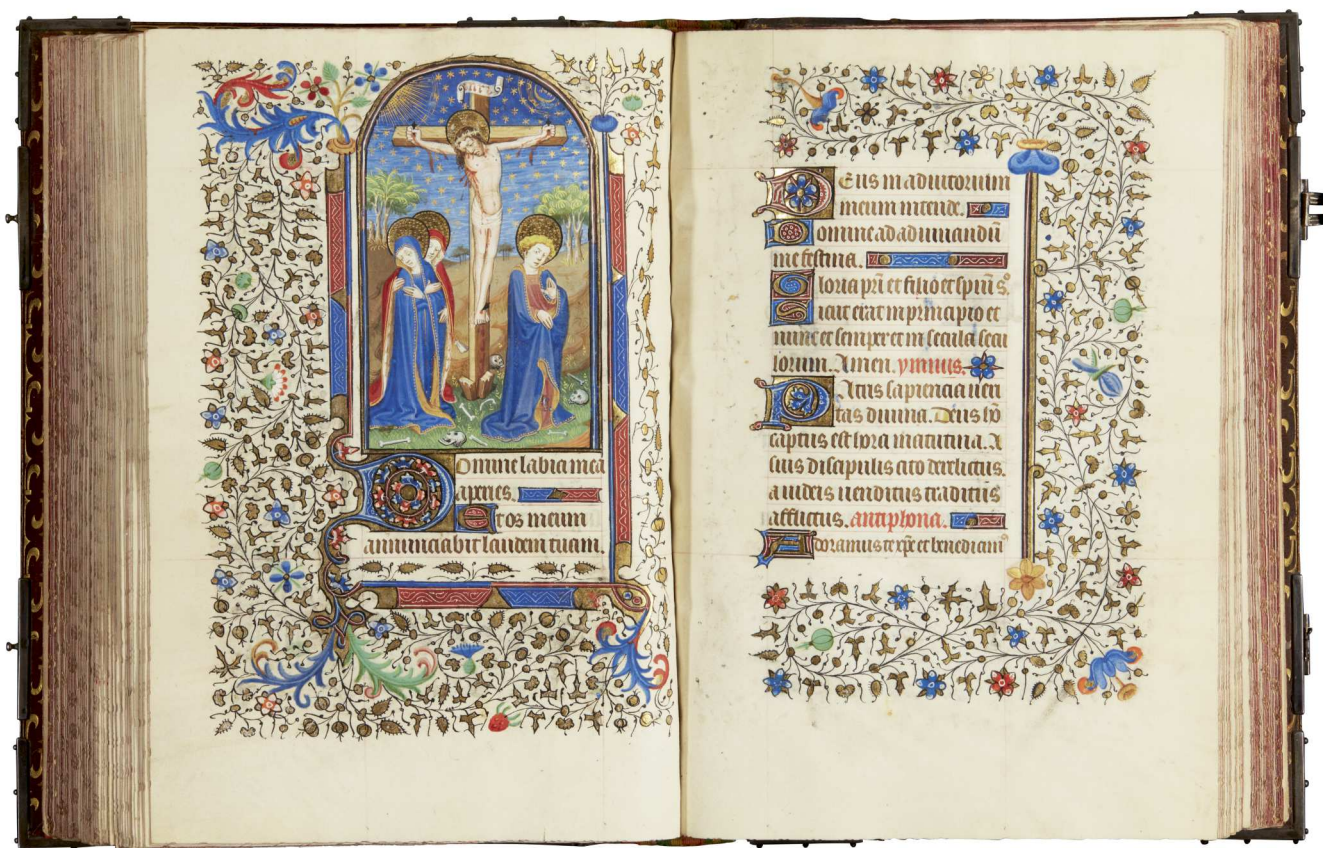 Domine labia mea
aperies.
Et os meum
annunciabit laudem tuam.
Deus in adiutorium
meum intende.
Domine ad adiuuandū
me festina.
Gloria pr̄i et filio et spiri̅ s̊
Sicut erat in principio et
nunc et semper et in secula secu
lorum. Amen. ymnus.
Patris sapiencia ueri
tas diuina. Deus hō
captus est hora matutina. A
suis discipulis cito derelictus.
a iudeis uenditus traditus
afflictus. antiphona.
Adoramus te xp̄e et benediam⁹